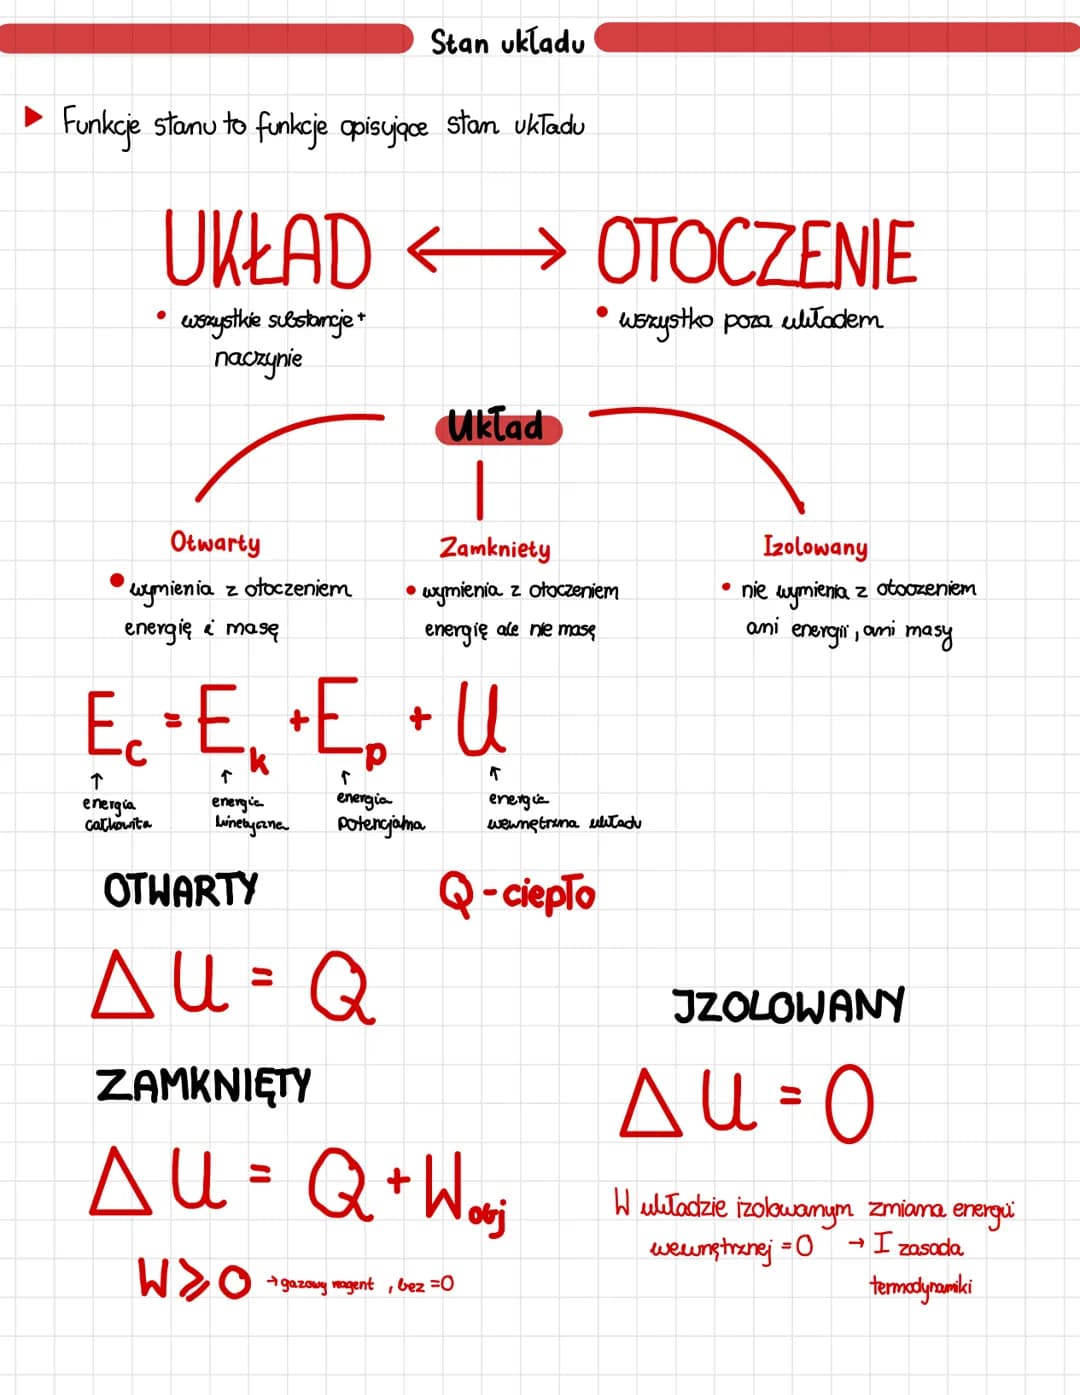 Stan układu
Funkcje stanu to funkcje opisujące stan układu
UKŁAD ↔ OTOCZENIE
• wszystkie substancje +
naczynie
• wszystko poza układem
Układ
Otwarty
• wymienia z otoczeniem
energię i masę
Zamkniety
• wymienia z otoczeniem
energię ale nie masę
Izolowany
• nie wymienia z otoczeniem
ani energii, ani masy
Ec = Ek + Ep + U
↑ ↑ ↑ ↑
energia
całkowita
energia
kinetyczna
energia
potencjalna
energia
wewnętrzna układu
OTWARTY
Q - ciepło
ΔU = Q
IZOLOWANY
ZAMKNIĘTY
ΔU = 0
ΔU = Q + Wobj
W układzie izolowanym zmiana energii
wewnętrznej = 0 → I zasada
termodynamiki
W ⩾ 0 → gazowy reagent, bez = 0